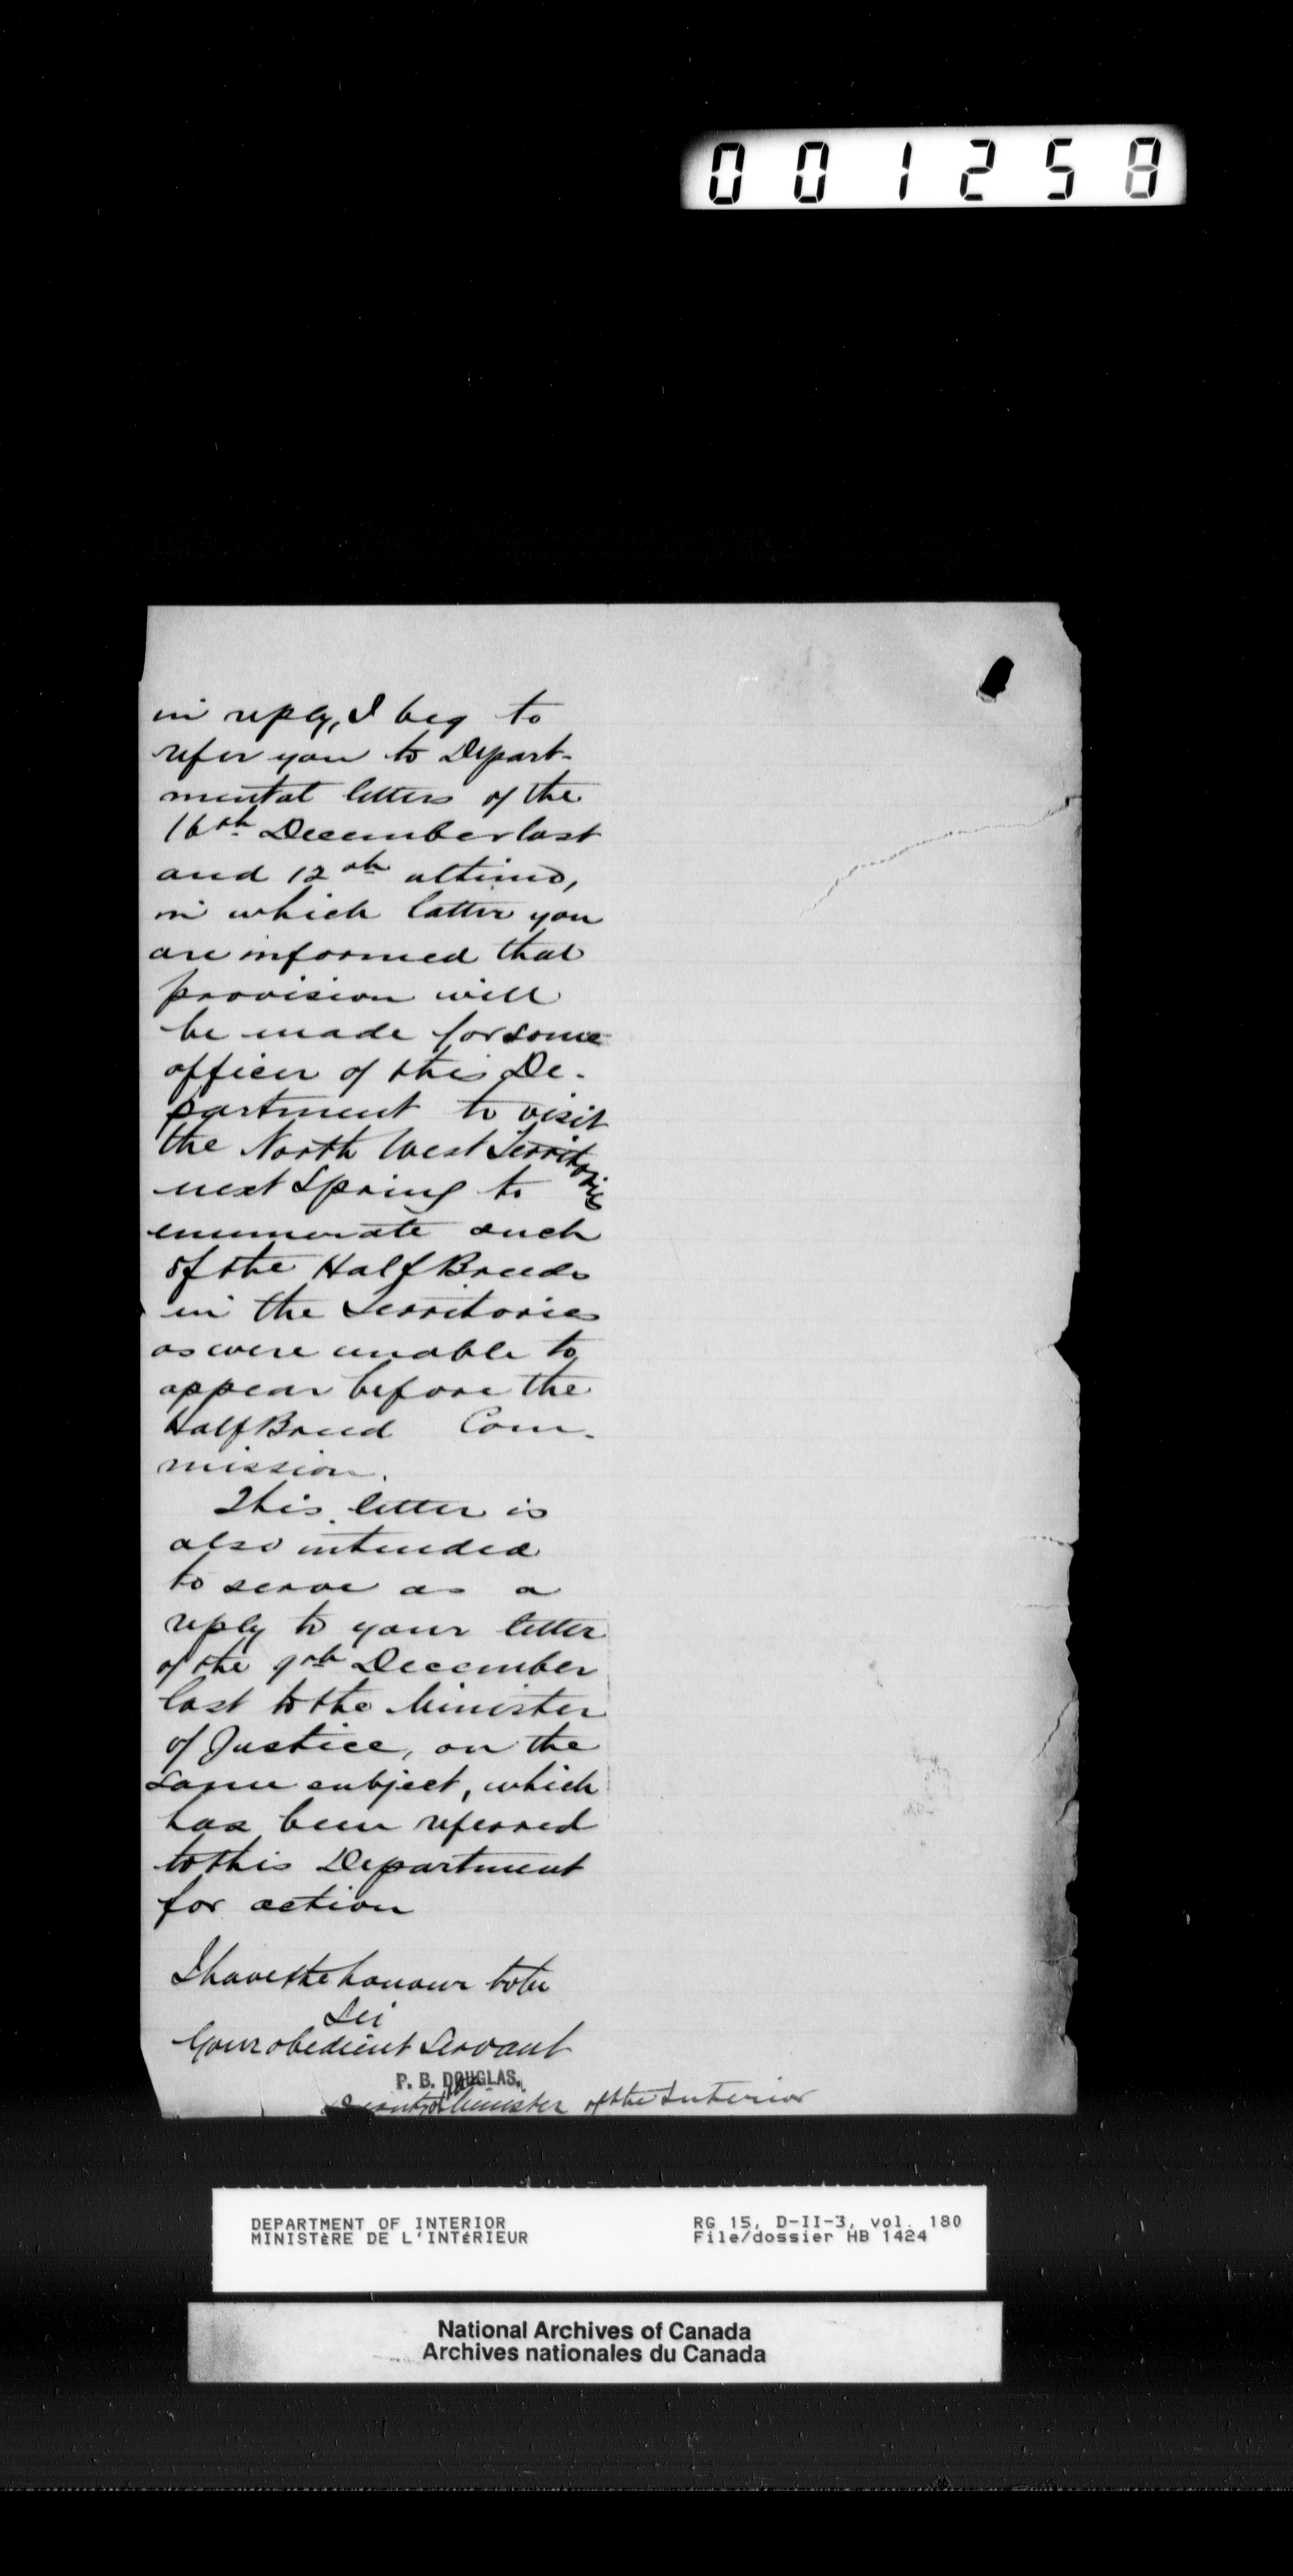 001258
in reply, I beg to
refer you to Depart-
mental letters of the
16th December last
and 12th ultimo,
in which latter you
are informed that
provision will
be made for some
officer of this De-
partment to visit
the North West Territories
next Spring to
enumerate such
of the Half Breeds
in the Territories
as were unable to
appear before the
Half Breed Com-
mission.
This letter is
also intended
to serve as a
reply to your letter
of the 9th December
last to the Minister
of Justice, on the
same subject, which
has been referred
to this Department
for action
I have the honour to be
Sir
Your obedient Servant
P. B. DOUGLAS,
Minister of the Interior
DEPARTMENT OF INTERIOR
MINISTÈRE DE L'INTÉRIEUR
RG 15, D-II-3, vol. 180
File/dossier HB 1424
National Archives of Canada
Archives nationales du Canada